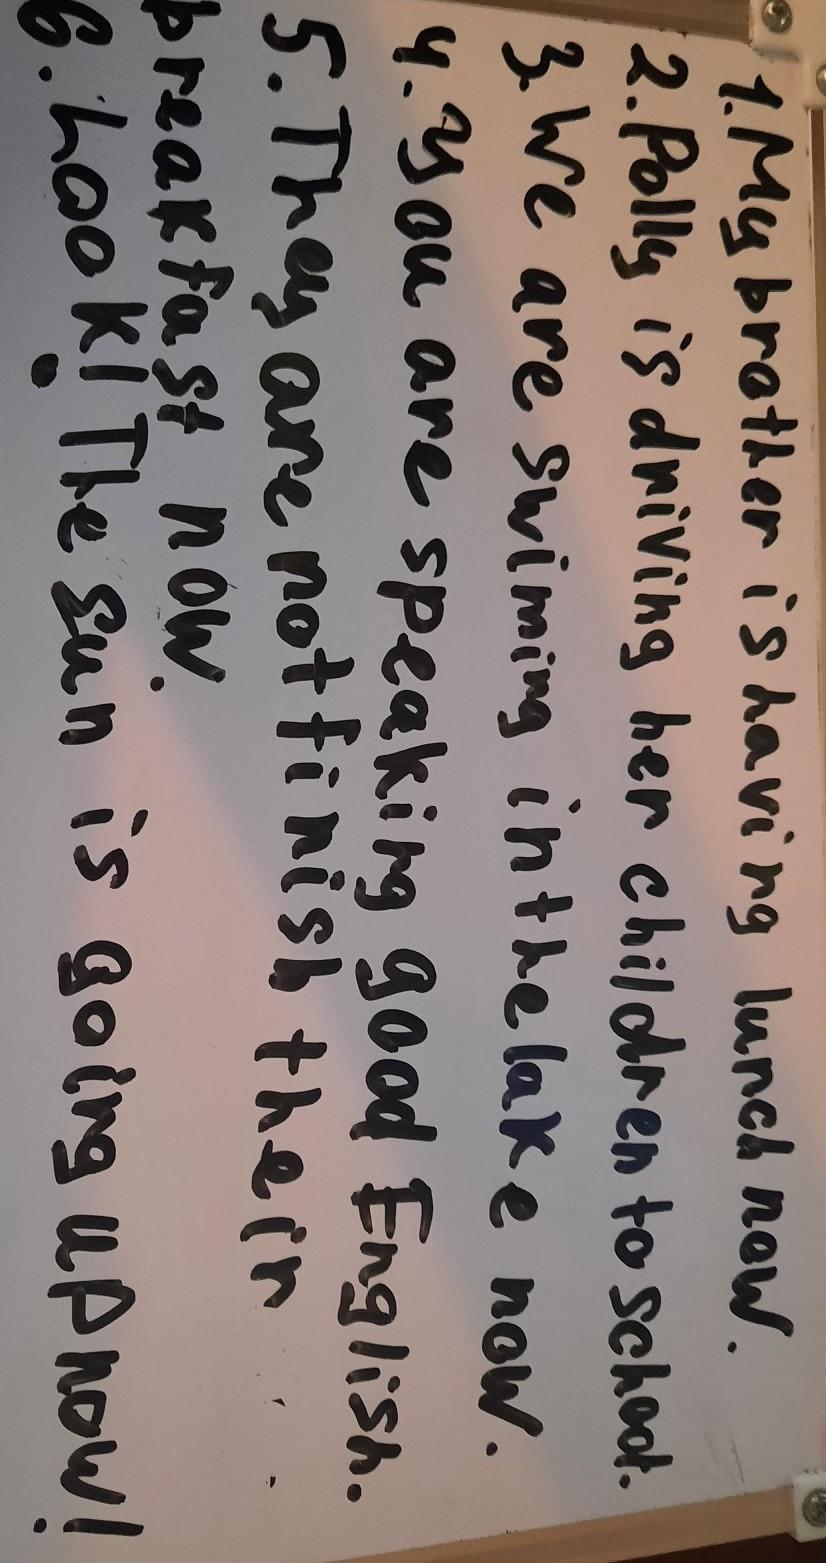 1. My brother is having lunch now.
2. Polly is driving her children to school.
3. We are swiming in the lake now.
4. you are speaking good English.
5. They are not finish their
breakfast now.
6. Look! The sun is going up now!